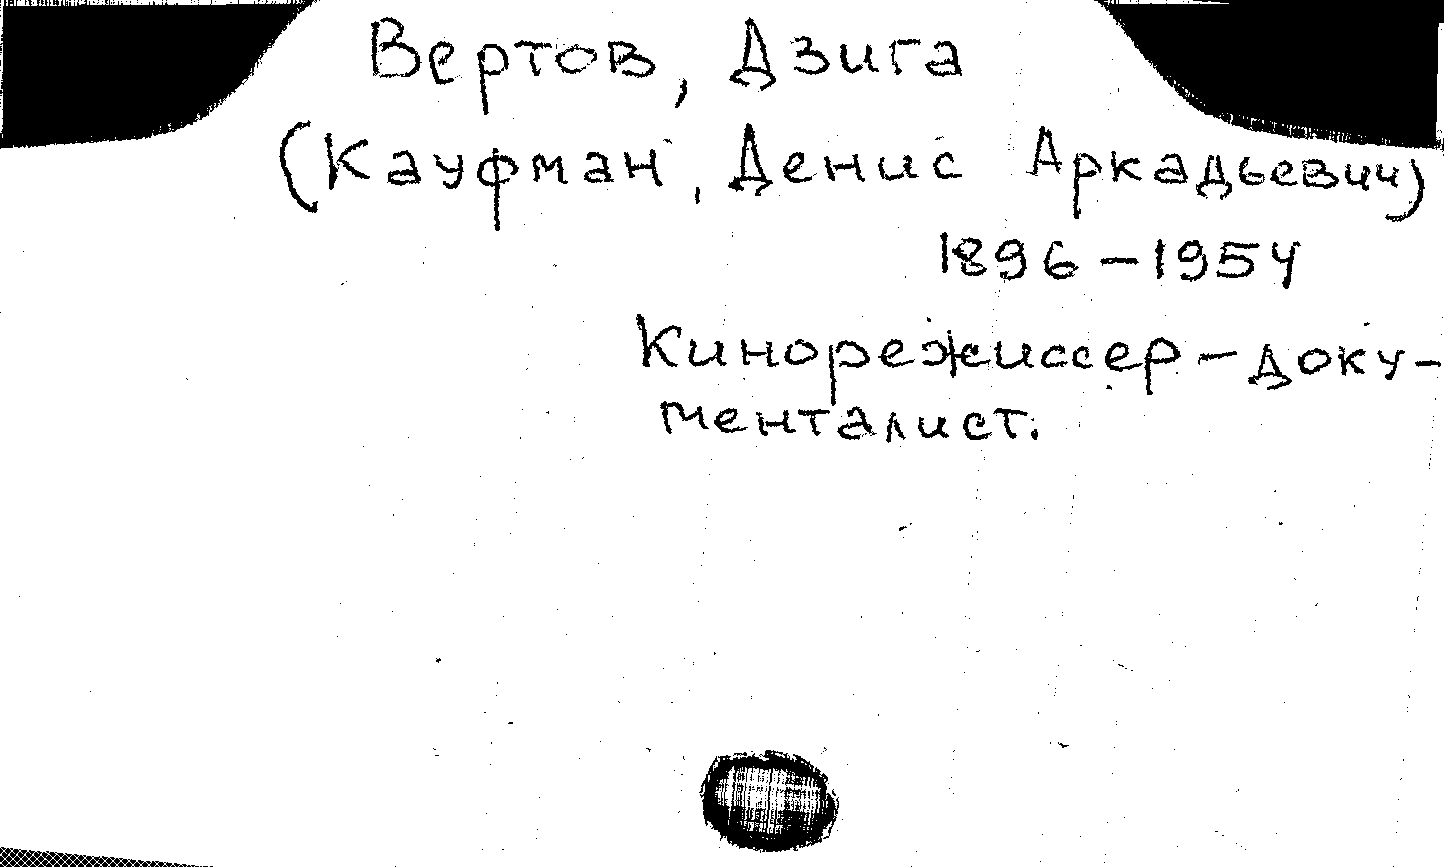 Вертов, Дзига
(Кауфман, Денис Аркадьевич)
1896-1954
Кинорежиссер-доку-
менталист.